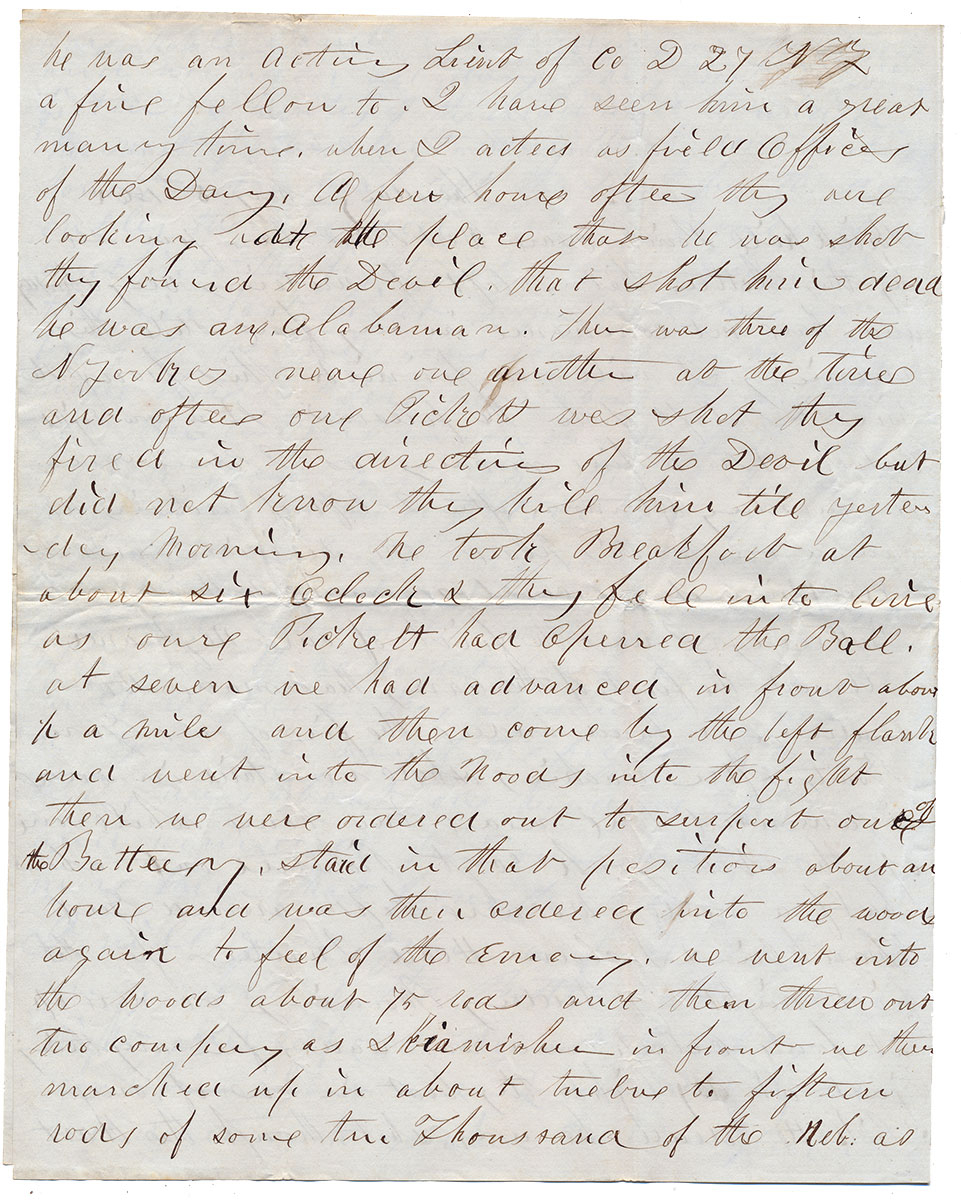 he was an acting Lieut of Co D 27 NY
a fine fellow to. I have seen him a great
many time. when I acted as field Officer
of the Day. A few hours after they were
looking the place that he was shot
they found the Devil. that shot him dead
he was an. Alabaman. Ther was three of the
N Yorkes neare one another at the time
and after one Pickett was shot they
fired in the direction of the Devil but
did not know they kill him till yester
day Morning. We took Breakfast at
about six Oclock & they fell in to line
as oure Pickett had Opened the Ball.
at seven we had advanced in front about
½ a mile and then come by the left flank
and went into the Woods into the fight
then we were ordered out to surport one of
the Battery. staid in that position about an
houre and was then ordered into the woods
again to feel of the Emeny. we went into
the woods about 75 rods and then threw out
two company as skirmisher in front we then
marched up in about twelve to fifteen
rods of some ten Thoussand of the Reb. as